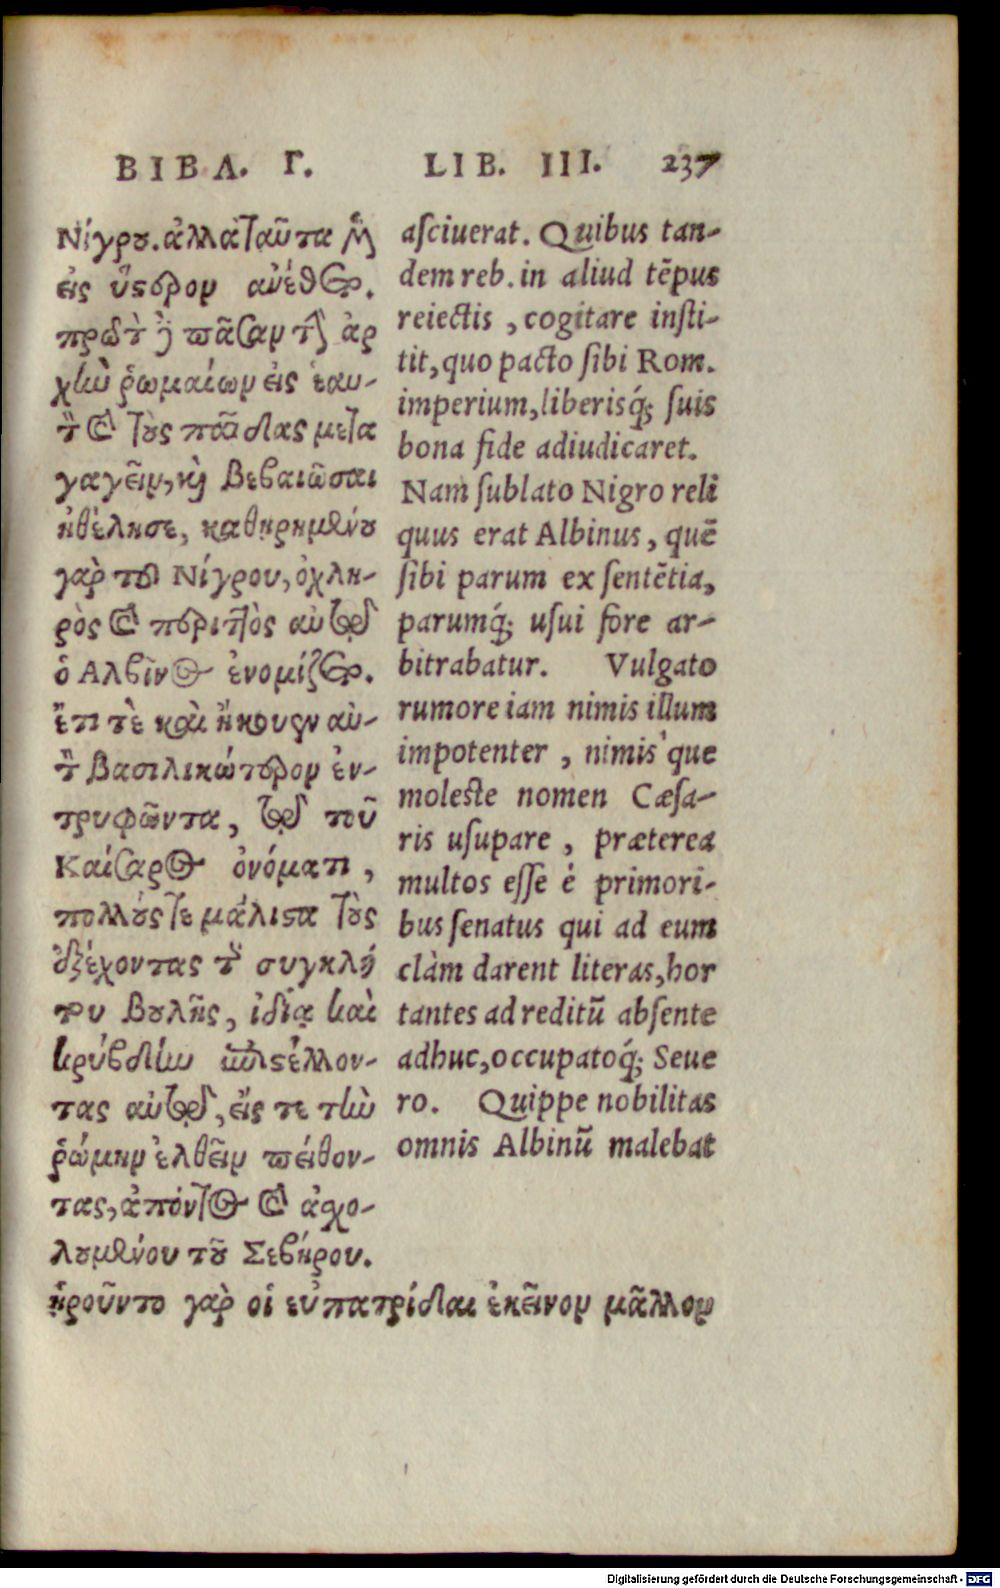 ΒΙΒΛ. Γ.
Νίγρου. ἀλλὰ ταῦτα μὲν
εἰς ὕστερον ἀνέθετο.
πρῶτον δὲ πᾶσαν τὴν ἀρ
χὴν ῥωμαίων εἰς ἑαυ-
τὸν καὶ τοὺς παῖδας μετα
γαγεῖν, καὶ βεβαιῶσαι
ἠθέλησε, καθῃρημένου
γὰρ τοῦ Νίγρου, ὀχλη-
ρὸς καὶ περιττὸς αὐτῷ
ὁ Αλβῖνος ἐνομίζετο.
ἔτι τὲ καὶ ἤκουεν αὐ-
τὸν βασιλικώτερον ἐν-
τρυφῶντα, τῷ τοῦ
Καίσαρος ὀνόματι,
πολλούς τε μάλιστα τοὺς
ἐξέχοντας τῆς συγκλή
του βουλῆς, ἰδίᾳ καὶ
κρύβδην ἐπιστέλλον-
τας αὐτῷ, εἴς τε τὴν
ῥώμην ἐλθεῖν πείθον-
τας, ἀπόντος καὶ ἀσχο-
λουμένου τοῦ Σεβήρου.
ᾑροῦντο γὰρ οἱ εὐπατρίδαι ἐκεῖνον μᾶλλον
LIB. III. 237
asciuerat. Quibus tan-
dem reb. in aliud tẽpus
reiectis, cogitare insti-
tit, quo pacto sibi Rom.
imperium, liberisq́; suis
bona fide adiudicaret.
Nam sublato Nigro reli
quus erat Albinus, quẽ
sibi parum ex sentẽtia,
parumq́; usui fore ar-
bitrabatur. Vulgato
rumore iam nimis illum
impotenter, nimis'que
moleste nomen Cæsa-
ris usupare, præterea
multos esse è primori-
bus senatus qui ad eum
clàm darent literas, hor
tantes ad reditũ absente
adhuc, occupatoq́; Seue
ro. Quippe nobilitas
omnis Albinũ malebat
Digitalisierung gefördert durch die Deutsche Forschungsgemeinschaft - DFG